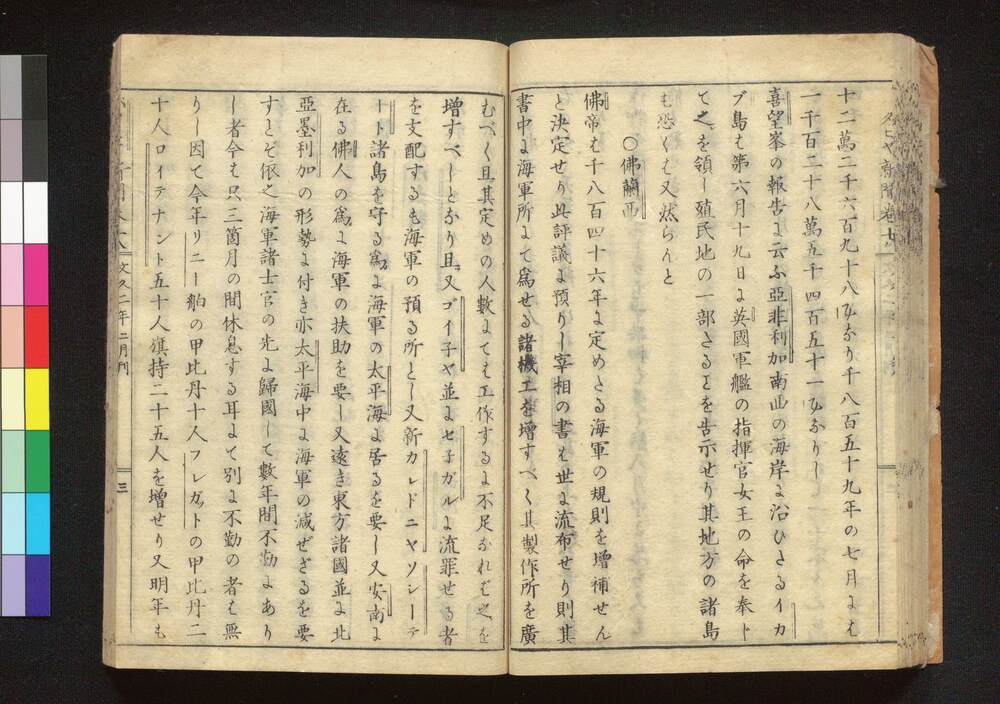 十二萬二千六百九十八なり千八百五十九年の七月には
一千百二十八萬五千四百五十一なりし
喜望峯の報告に云ふ亞非利加南西の海岸に沿ひたるイカ
ブ島は第六月十九日に英國軍艦の指揮官女王の命を奉ト
て之を領し殖民地の一部たるを告示せり其地方の諸島
も恐くは又然らんと
○佛蘭西
佛帝は千八百四十六年に定めたる海軍の規則を增補せん
と決定せり此評議に預りし宰相の書は世に流布せり則其
書中に海軍所にて爲せる諸機工を增すべく其製作所を廣
むべく且其定めの人數にては工作するに不足なれば之を
增すべしとなり且又ゴイ子ヤ並にセ子ガルに流罪せる者
を支配するも海軍の預る所とし又新カレドニヤソシーテ
ート諸島を守る爲に海軍の太平海に居るを要し又安南に
在る佛人の爲に海軍の扶助を要し又遠き東方諸國並に北
亞墨利加の形勢に付き亦太平海中に海軍の減ぜざるを要
すとぞ依之海軍諸士官の先に歸國して數年間不勤にあり
し者今は只三箇月の間休息する耳にて別に不勤の者は無
りし因て今年リニー舶の甲比丹十人フレガットの甲比丹二
十人ロイテナント五十人旗持二十五人を增せり又明年も
文久二年二月
三